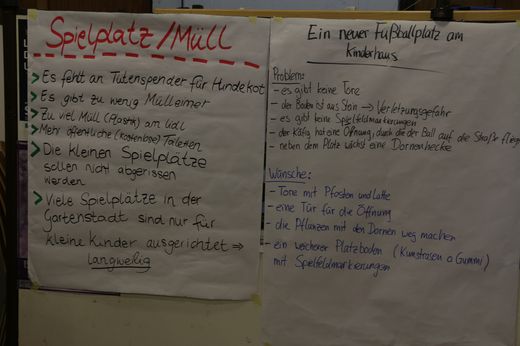 Spielplatz/Müll
> Es fehlt an Tütenspender für Hundekot
> Es gibt zu wenig Mülleimer
> Zu viel Müll (Plastik) am Lidl
> Mehr öffentliche (kostenlose) Toiletten
> Die kleinen Spielplätze
sollen nicht abgerissen
werden
> Viele Spielplätze in der
Gartenstadt sind nur für
kleine Kinder ausgerichtet ⇒
langweilig
Ein neuer Fußballplatz am
Kinderhaus
Problem:
- es gibt keine Tore
- der Boden ist aus Stein → Verletzungsgefahr
- es gibt keine Spielfeldmarkierungen
- der Käfig hat eine Öffnung, durch die der Ball auf die Straße fliegt
- neben dem Platz wächst eine Dornenhecke
Wünsche:
- Tore mit Pfosten und Latte
- eine Tür für die Öffnung
- die Pflanzen mit den Dornen weg machen
- ein weicherer Platzboden (Kunstrasen o. Gummi)
mit Spielfeldmarkierungen